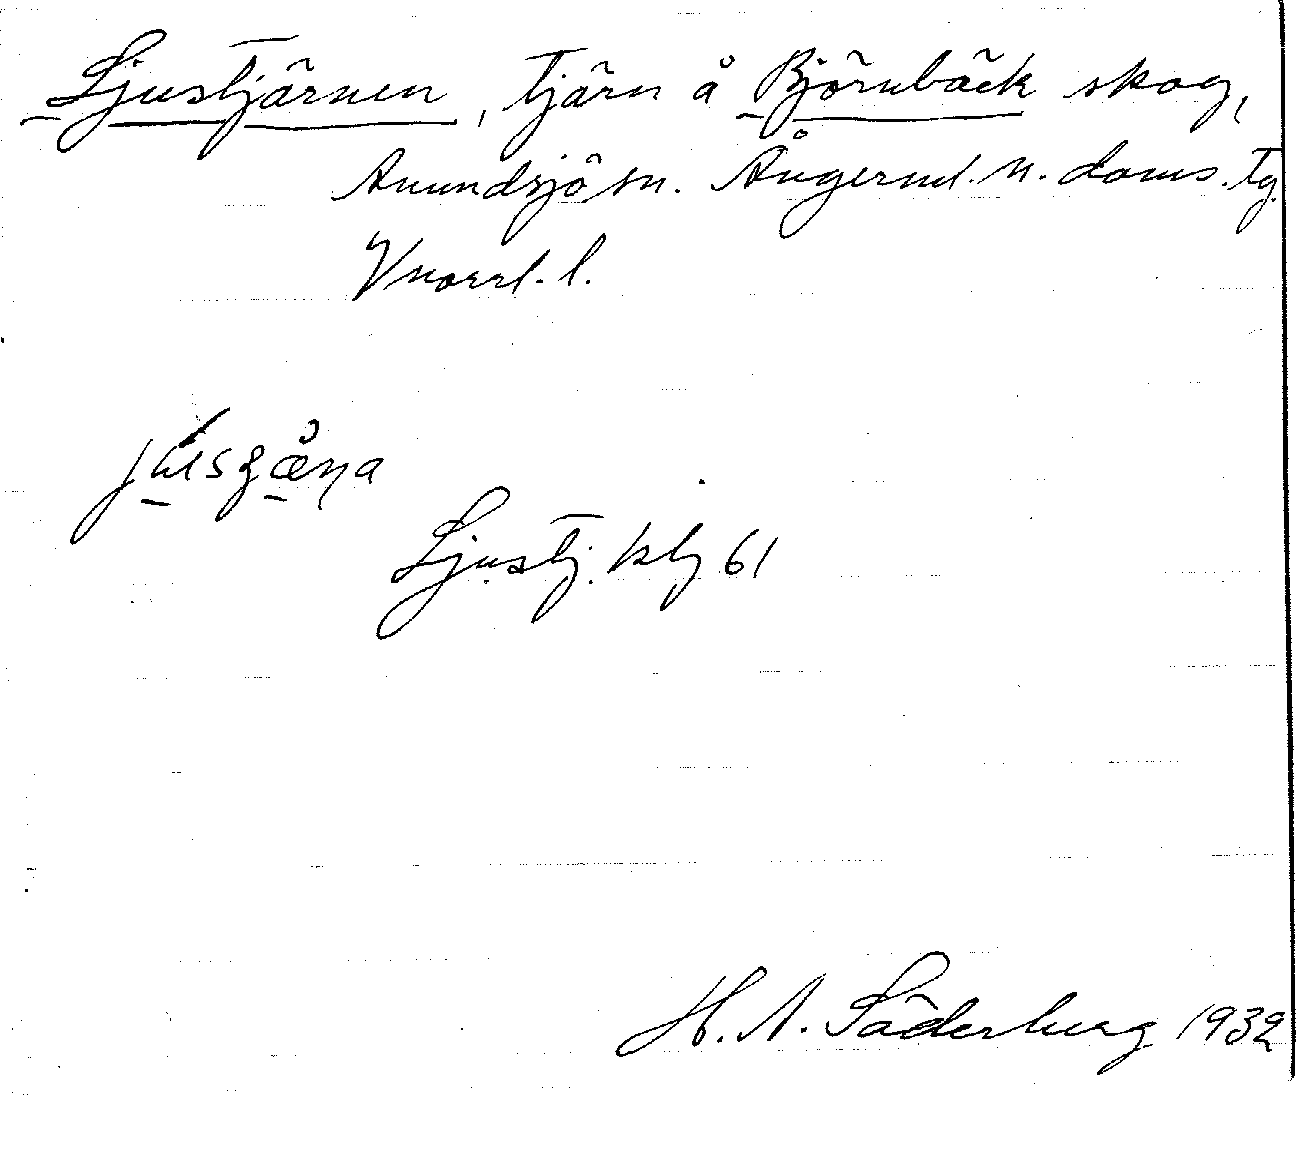 Ljustjärnen, tjärn å Björnbäck skog,
Anundsjö sn. Ångerml. n. doms. tg
Vnorrl. l.
Ljustj. kbg 61
H. A. Söderberg 1932